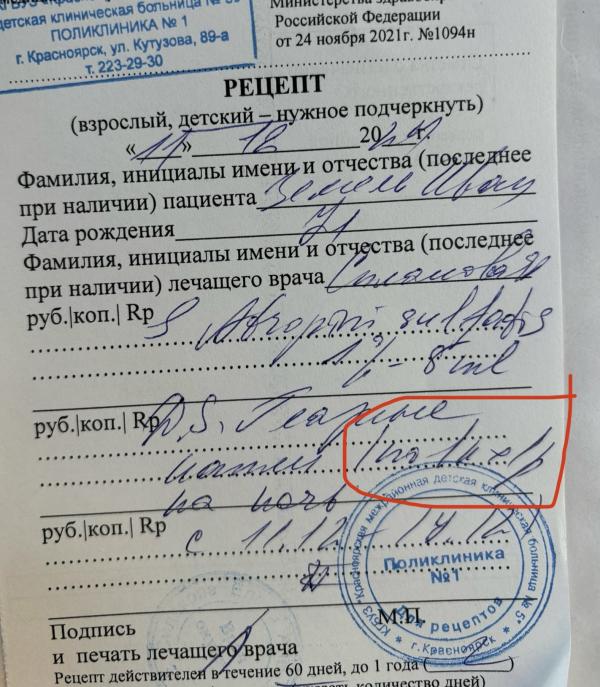 детская клиническая больница №
ПОЛИКЛИНИКА № 1
г. Красноярск, ул. Кутузова, 89-а
т. 223-29-30
Российской Федерации
от 24 ноября 2021г. №1094н
РЕЦЕПТ
(взрослый, детский – нужное подчеркнуть)
« » 12 20
Фамилия, инициалы имени и отчества (последнее
при наличии) пациента Иван
Дата рождения
Фамилия, инициалы имени и отчества (последнее
при наличии) лечащего врача
руб.|коп.| Rp S. Atropini sulfatis
1% - 5 ml
руб.|коп.| Rp D.S. Глазные
капли по 1к х 1р
на ночь
руб.|коп.| Rp с 11.12 -
КГБУЗ "Красноярская межрайонная детская клиническая больница № 5"
Поликлиника
№1
Для рецептов
* г.Красноярск *
М.П.
Подпись
и печать лечащего врача
Рецепт действителен в течение 60 дней, до 1 года (
количество дней)